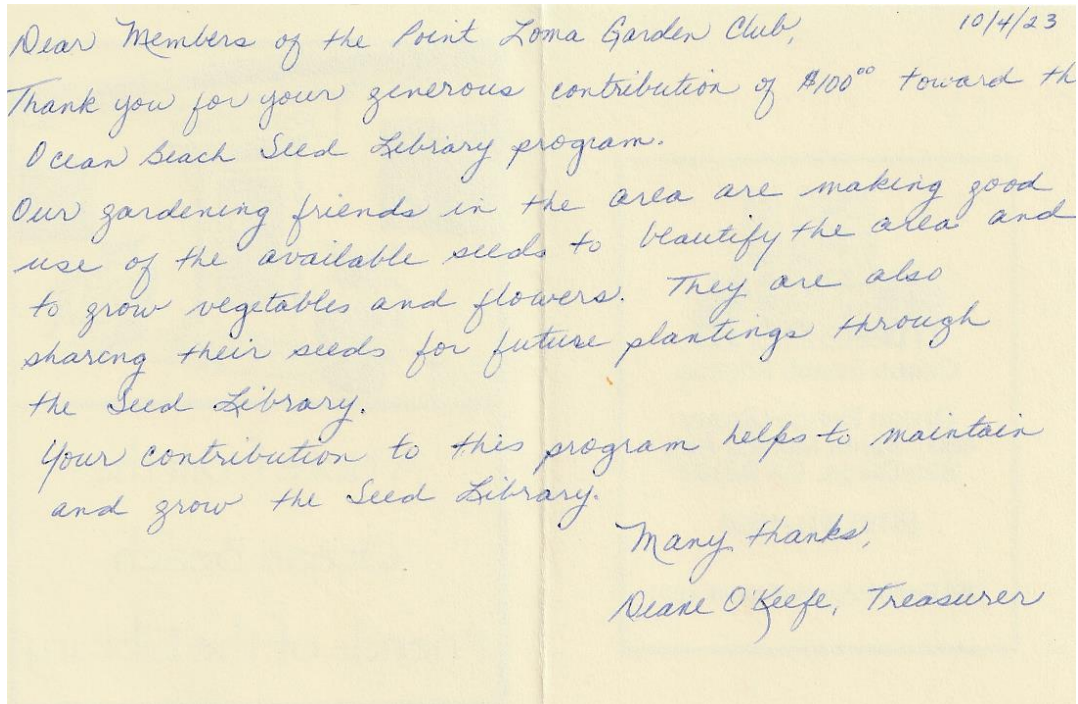 10/4/23
Dear Members of the Point Loma Garden Club,
Thank you for your generous contribution of $100⁰⁰ toward th
Ocean Beach Seed Library program.
Our gardening friends in the area are making good
use of the available seeds to beautify the area and
to grow vegetables and flowers. They are also
sharing their seeds for future plantings through
the Seed Library.
Your contribution to this program helps to maintain
and grow the Seed Library.
Many thanks,
Deane O'Keefe, Treasurer